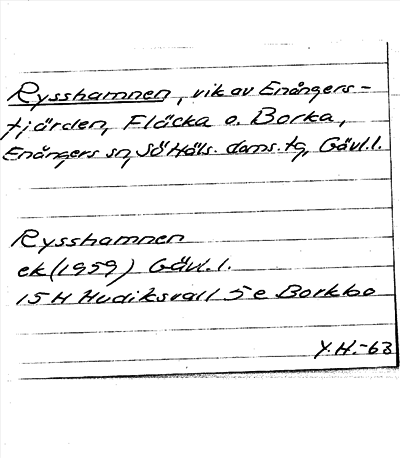 Rysshamnen, vik av Enångers-
fjärden, Fläcka o. Borka,
Enångers sn, Sö Häls. doms. tg, Gävl.l.
Rysshamnen
ek (1959) Gävl.l.
15H Hudiksvall 5e Borkbo
Y.H.-63